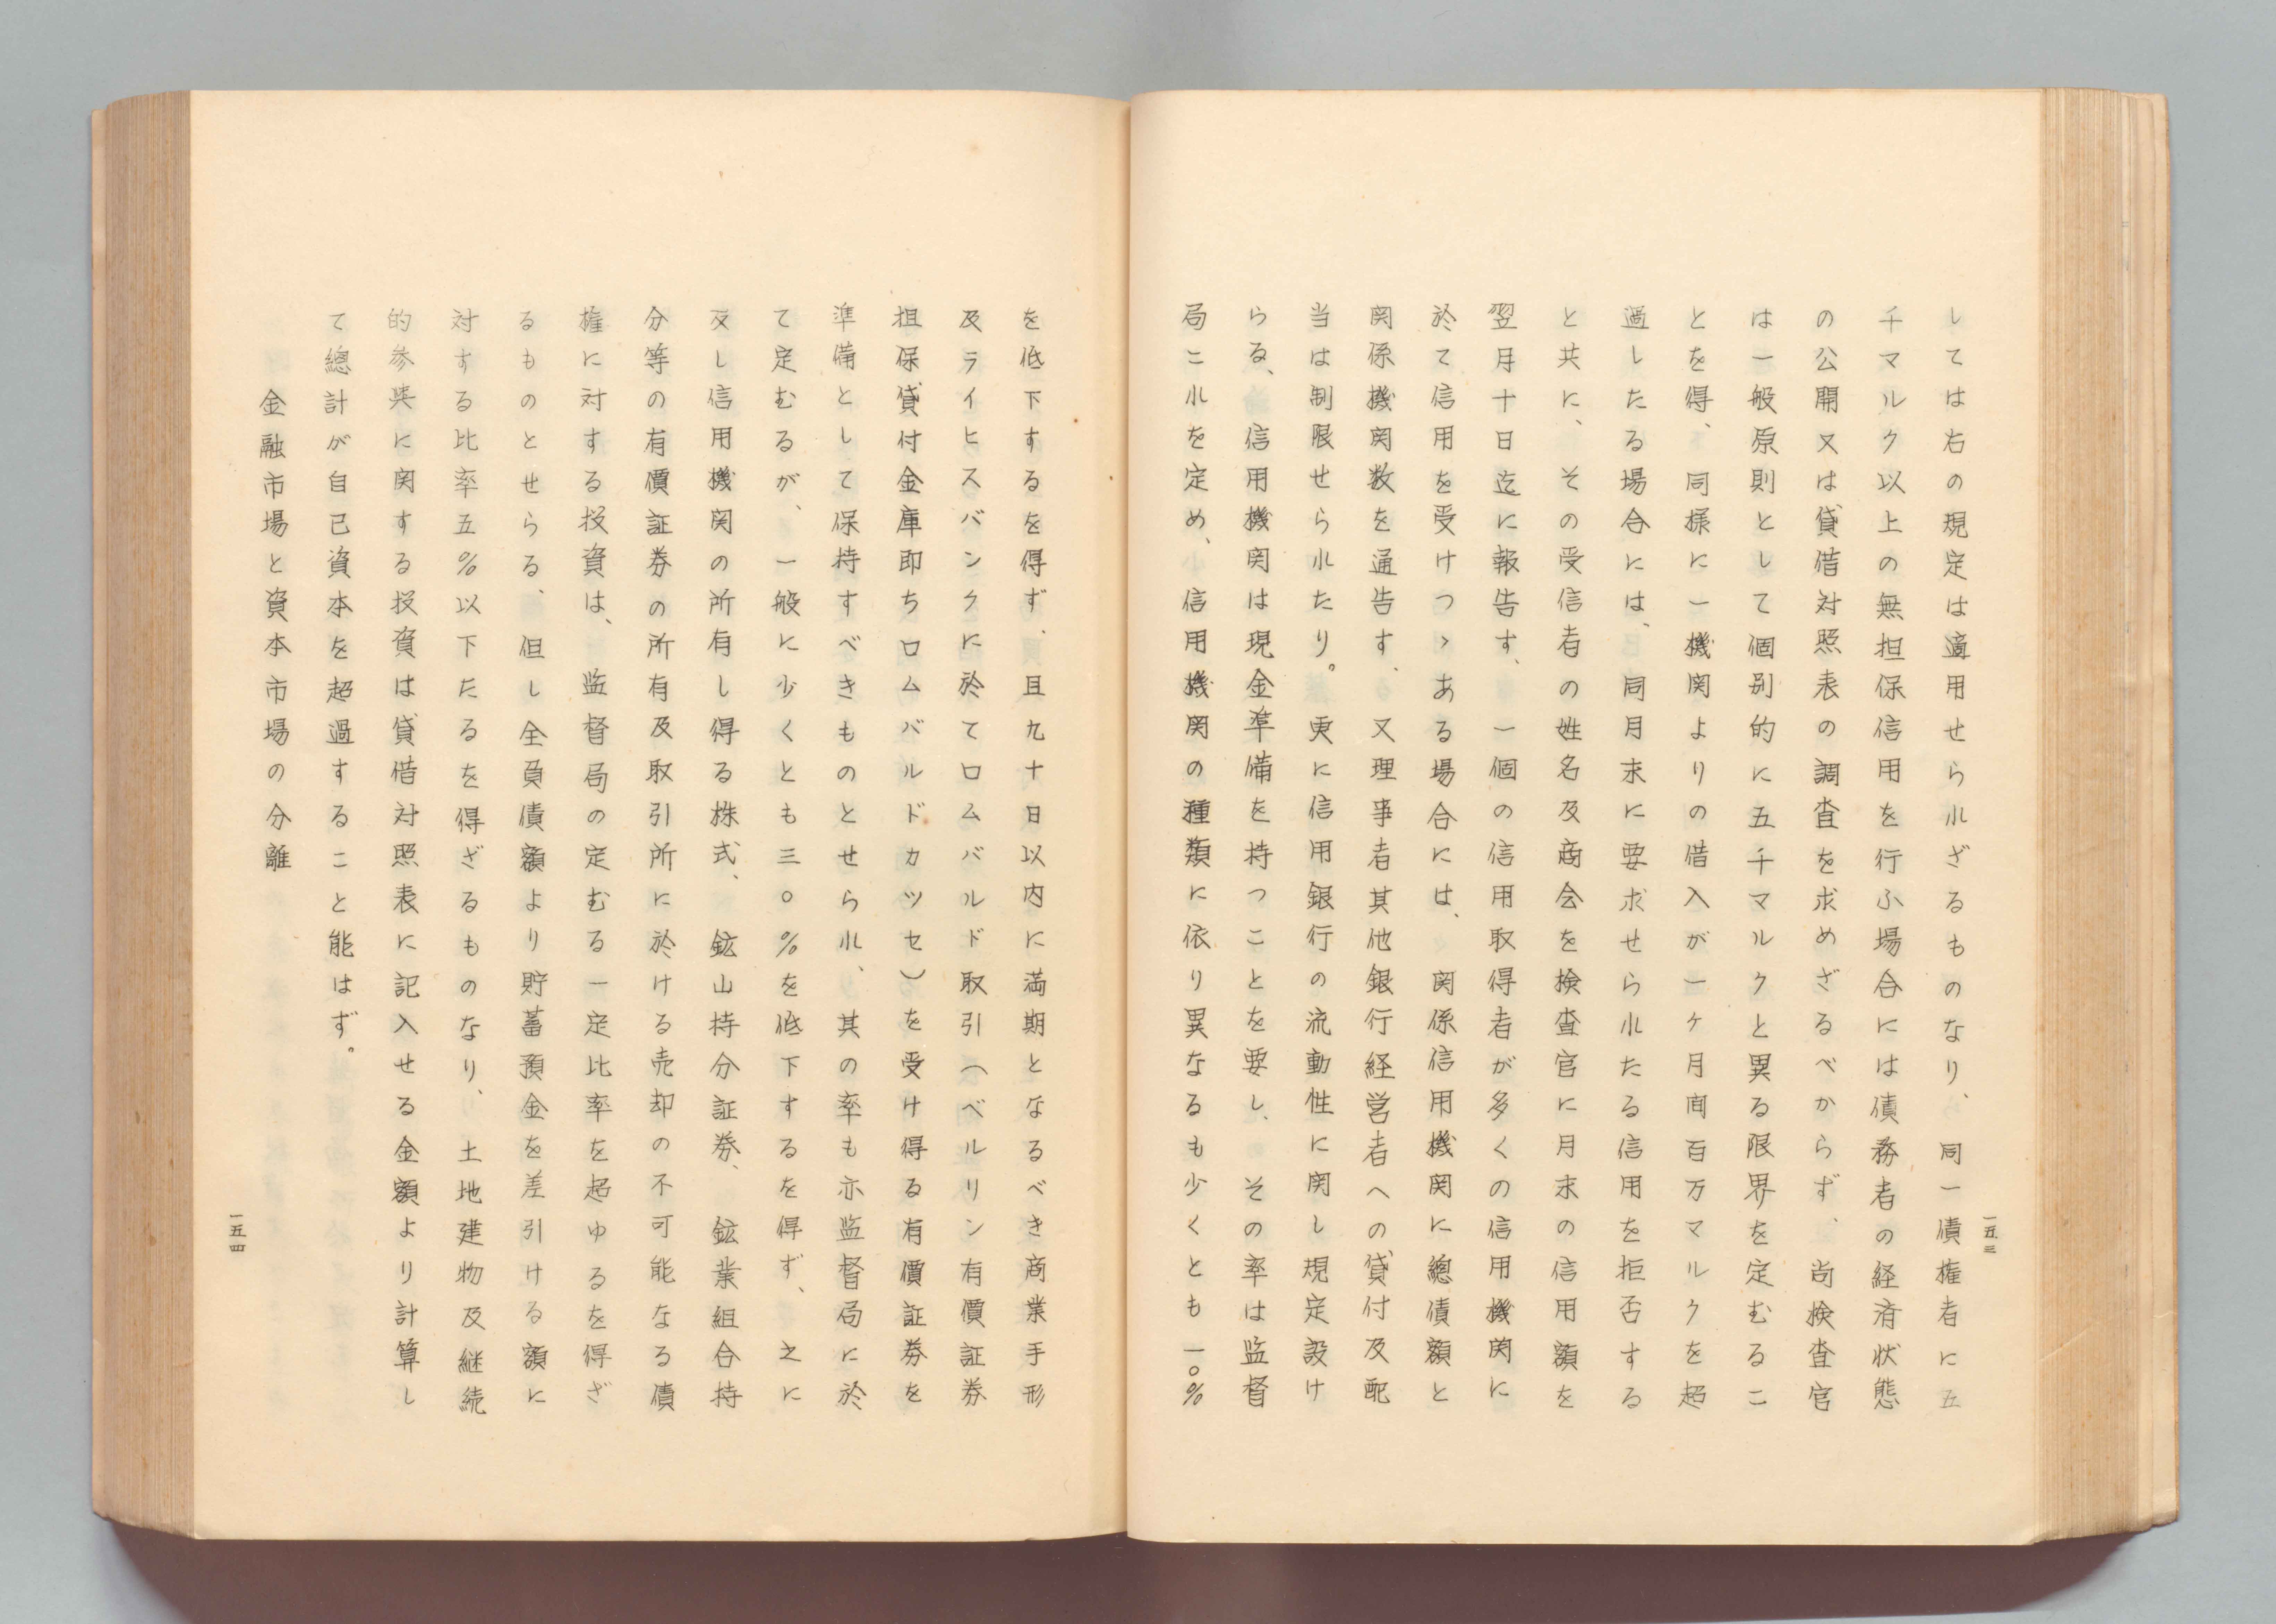 しては右の規定は適用せられざるものなり、同一債権者に五
千マルク以上の無担保信用を行ふ場合には債務者の経済状態
の公開又は貸借対照表の調査を求めざるべからず、尚検査官
は一般原則として個別的に五千マルクと異る限界を定むるこ
とを得、同様に一機関よりの借入が一ヶ月間百万マルクを超
過したる場合には、同月末に要求せられたる信用を拒否する
と共に、その受信者の姓名及商会を検査官に月末の信用額を
翌月十日迄に報告す、一個の信用取得者が多くの信用機関に
於て信用を受けつゝある場合には、関係信用機関に總債額と
関係機関数を通告す、又理事者其他銀行経営者への貸付及配
当は制限せられたり。更に信用銀行の流動性に関し規定設け
らる、信用機関は現金準備を持つことを要し、その率は監督
局これを定め、信用機関の種類に依り異なるも少くとも一〇%
一五三
を低下するを得ず、且九十日以内に満期となるべき商業手形
及ライヒスバンクに於てロムバルド取引（ベルリン有價証券
担保貸付金庫即ちロムバルドカッセ）を受け得る有價証券を
準備として保持すべきものとせられ、其の率も亦監督局に於
て定むるが、一般に少くとも三〇%を低下するを得ず、之に
反し信用機関の所有し得る株式、鉱山持分証券、鉱業組合持
分等の有價証券の所有及取引所に於ける売却の不可能なる債
権に対する投資は、監督局の定むる一定比率を超ゆるを得ざ
るものとせらる、但し全負債額より貯蓄預金を差引ける額に
対する比率五%以下たるを得ざるものなり、土地建物及継続
的参與に関する投資は貸借対照表に記入せる金額より計算し
て總計が自己資本を超過すること能はず。
金融市場と資本市場の分離
一五四